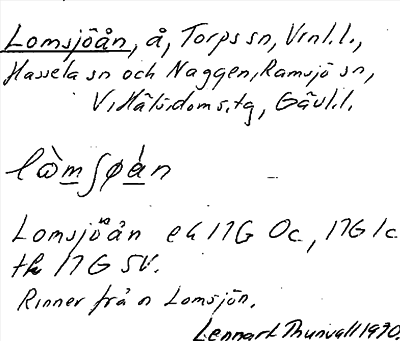 Lomsjöån, å, Torps sn, Vrnl.l.,
Hassela sn och Naggen, Ramsjö sn,
V. Häls.doms.tg, Gävl.l.
lòmʃøán
Lomsjöån ek 17G 0c, 17G 1c
tk 17G SV.
Rinner från Lomsjön.
Lennart Thunvall 1970.